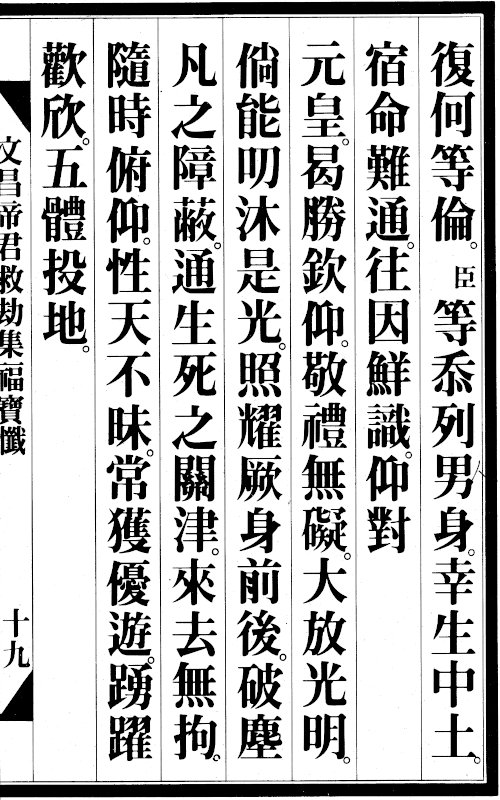 復何等倫。臣等忝列男身。幸生中土。
宿命難通。往因鮮識。仰對
元皇。曷勝欽仰。敬禮無礙。大放光明。
倘能叨沐是光。照耀厥身前後。破塵
凡之障蔽。通生死之關津。來去無拘。
隨時俯仰。性天不昧。常獲優遊。踴躍
歡欣。五體投地。
文昌帝君救劫集福寶懺
十九